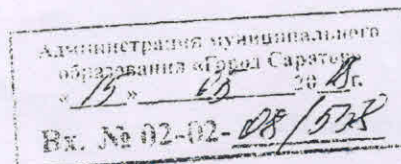 Администрация муниципального
образования «Город Саратов»
«15» 05 2018г.
Вх. № 02-02-08/538